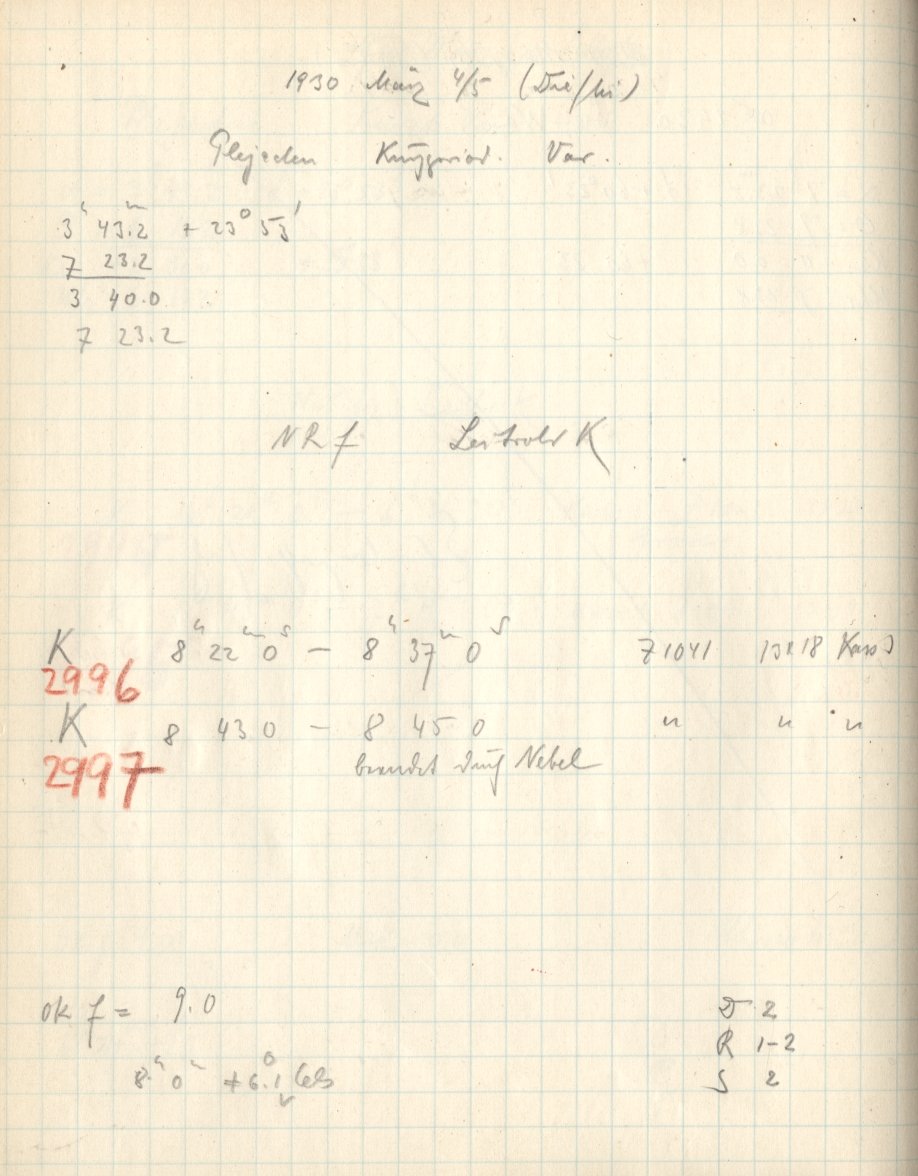 1930 März 4/5 (Die/Mi)
Plejaden Kurzperiod. Var.
3ʰ 43.2ᵐ + 23° 53'
7 23.2
3 40.0
7 23.2
NR f K
K 8ʰ 22ᵐ 0ˢ — 8ʰ 37ᵐ 0ˢ Z 1041 13x18
2996
K 8 43 0 — 8 45 0 " " "
2997 beendet durch Nebel
ok f = 9.0
8ʰ 0ᵐ +6.1° Cels
D 2
R 1-2
S 2